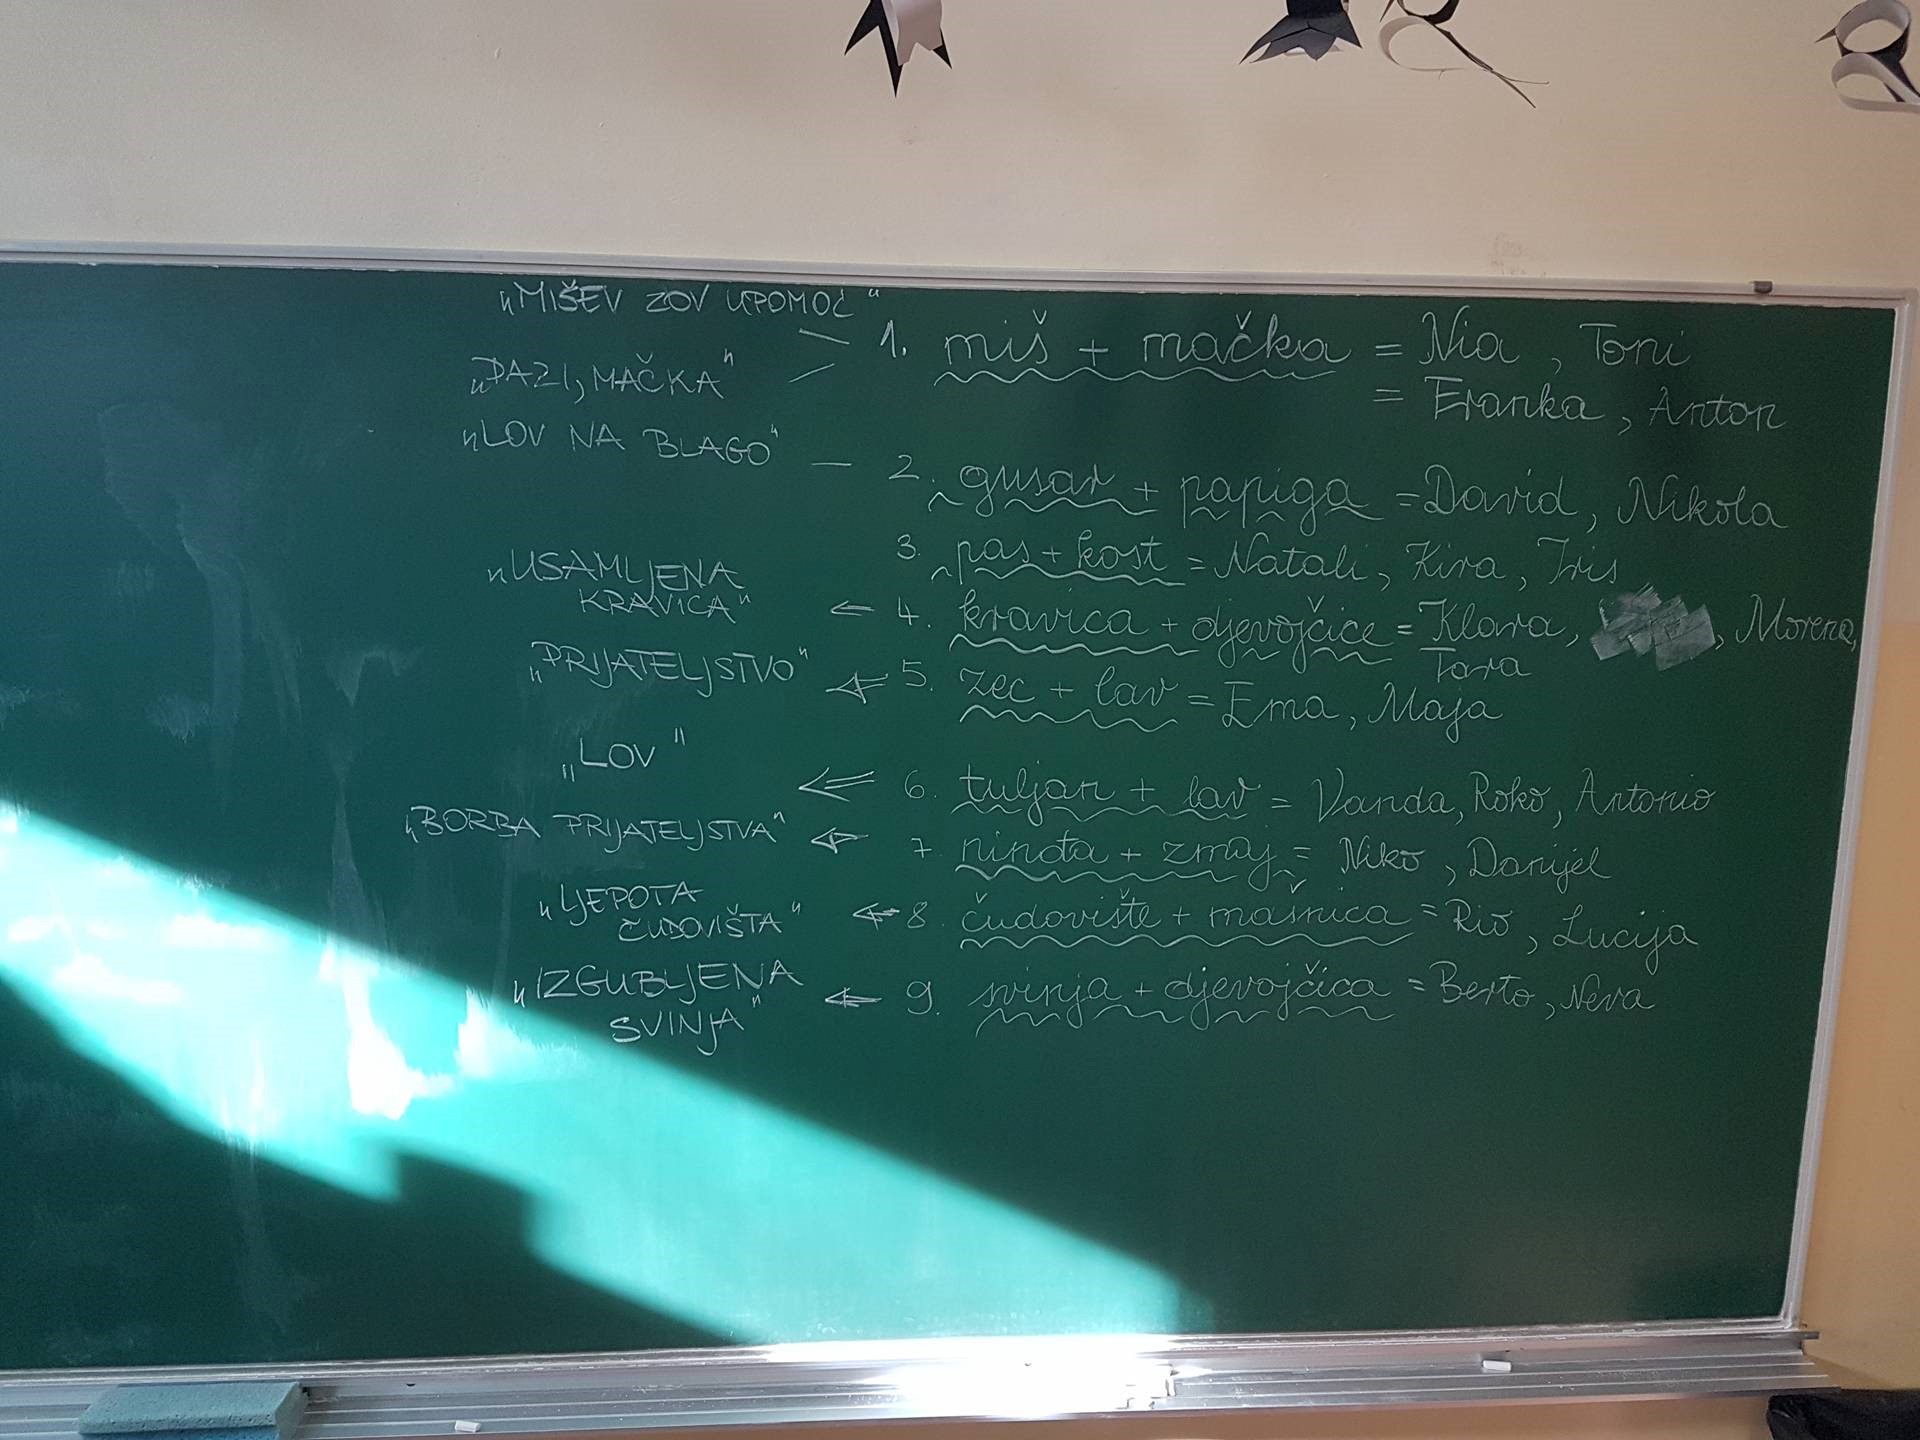 „MIŠEV ZOV UPOMOĆ“
„PAZI, MAČKA“
„LOV NA BLAGO“
„USAMLJENA
KRAVICA“
„PRIJATELJSTVO“
„LOV“
„BORBA PRIJATELJSTVA“
„LJEPOTA
ČUDOVIŠTA“
„IZGUBLJENA
SVINJA“
1. miš + mačka = Nia, Toni
= Franka, Anton
2. gusar + papiga = David, Nikola
3. pas + kost = Natali, Kira, Iris
4. kravica + djevojčice = Klara, , Morena,
Tara
5. zec + lav = Ema, Maja
6. tuljan + lav = Vanda, Roko, Antonio
7. ninđa + zmaj = Niko, Danijel
8. čudovište + mašnica = Rio, Lucija
9. svinja + djevojčica = Berto, Neva